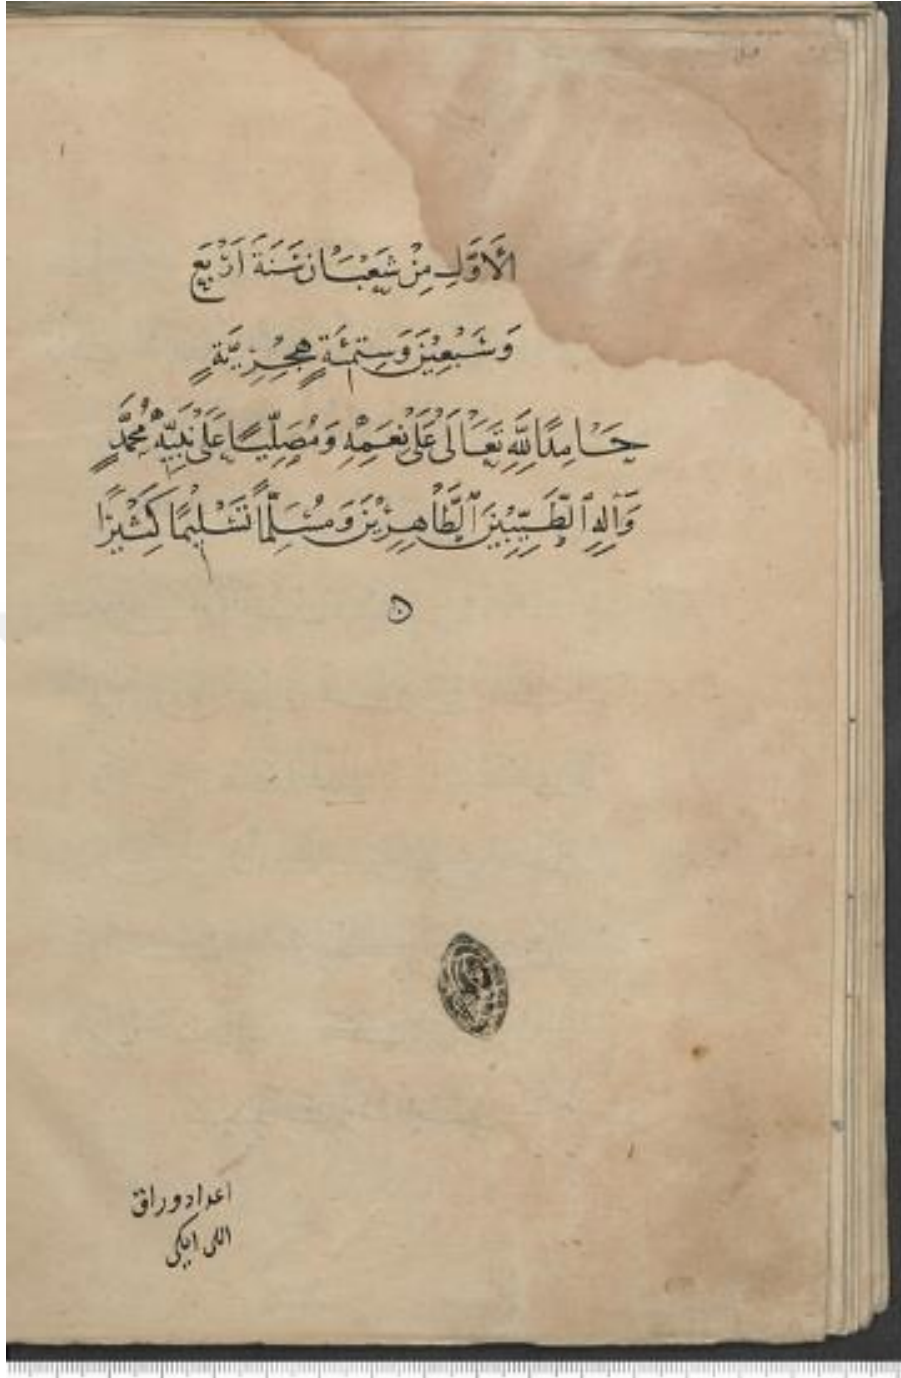 الْأَوَّلِ مِنْ شَعْبَانَ سَنَةَ اَرْبَعِ
وَسَبْعِيْنَ وَسِتِّمِئَةٍ هِجْرِيَّةٍ
حَامِدًا لِلّٰهِ تَعَالَى عَلَى نِعَمِهِ وَمُصَلِّيًا عَلَى نَبِيِّهِ مُحَمَّدٍ
وَآلِهِ ٱلطَّيِّبِيْنَ ٱلطَّاهِرِيْنَ وَمُسَلِّمًا تَسْلِيْمًا كَثِيْرًا
اعداد وراق
اللی ایکی